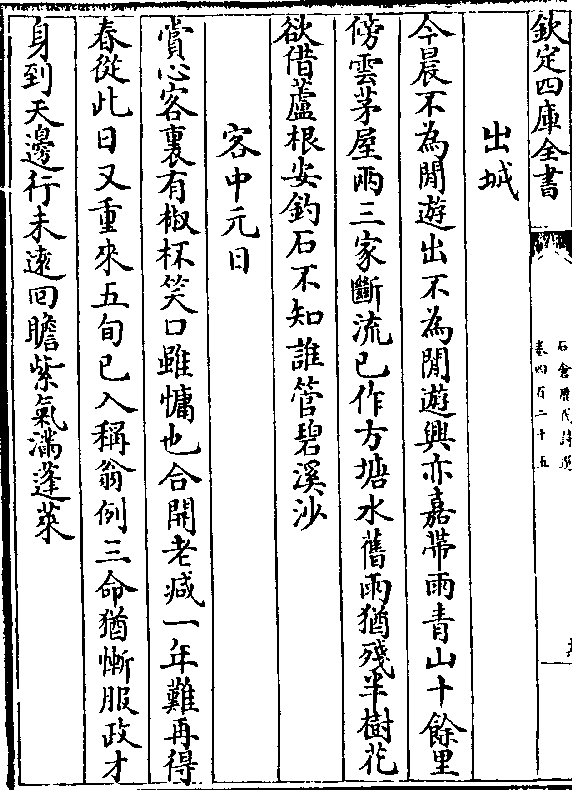 欽定四庫全書
石倉歷代詩選
卷四百二十五
出城
今晨不為閒遊出不為閒遊興亦嘉帶雨青山十餘里
傍雲茅屋兩三家斷流已作方塘水舊雨猶殘半樹花
欲借蘆根安釣石不知誰管碧溪沙
客中元日
賞心客裏有椒杯笑口雖慵也合開老感一年難再得
春從此日又重來五旬已入稱翁例三命猶慚服政才
身到天邊行未遠回瞻紫氣滿蓬萊